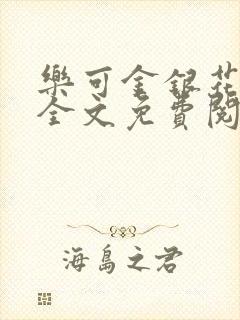 樂可金銀花
全文免費閱
海島之君